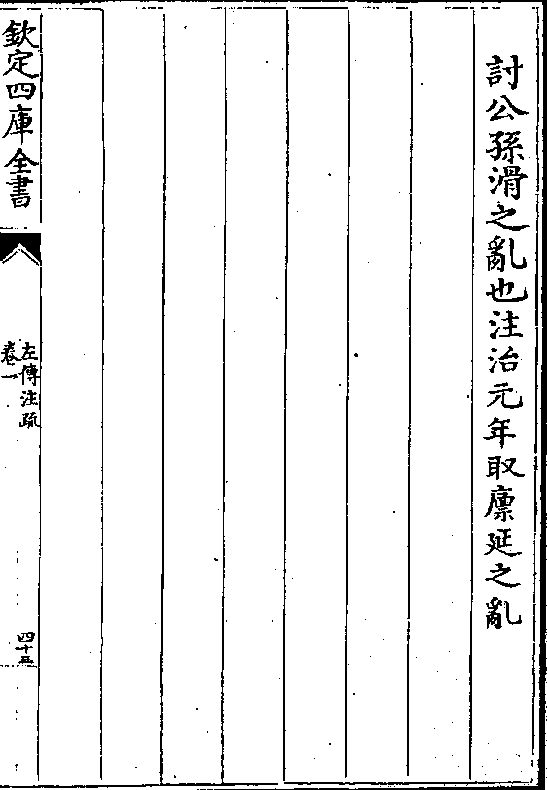 討公孫滑之亂也注治元年取廪延之亂
欽定四庫全書
左傳注疏
卷一
四十五